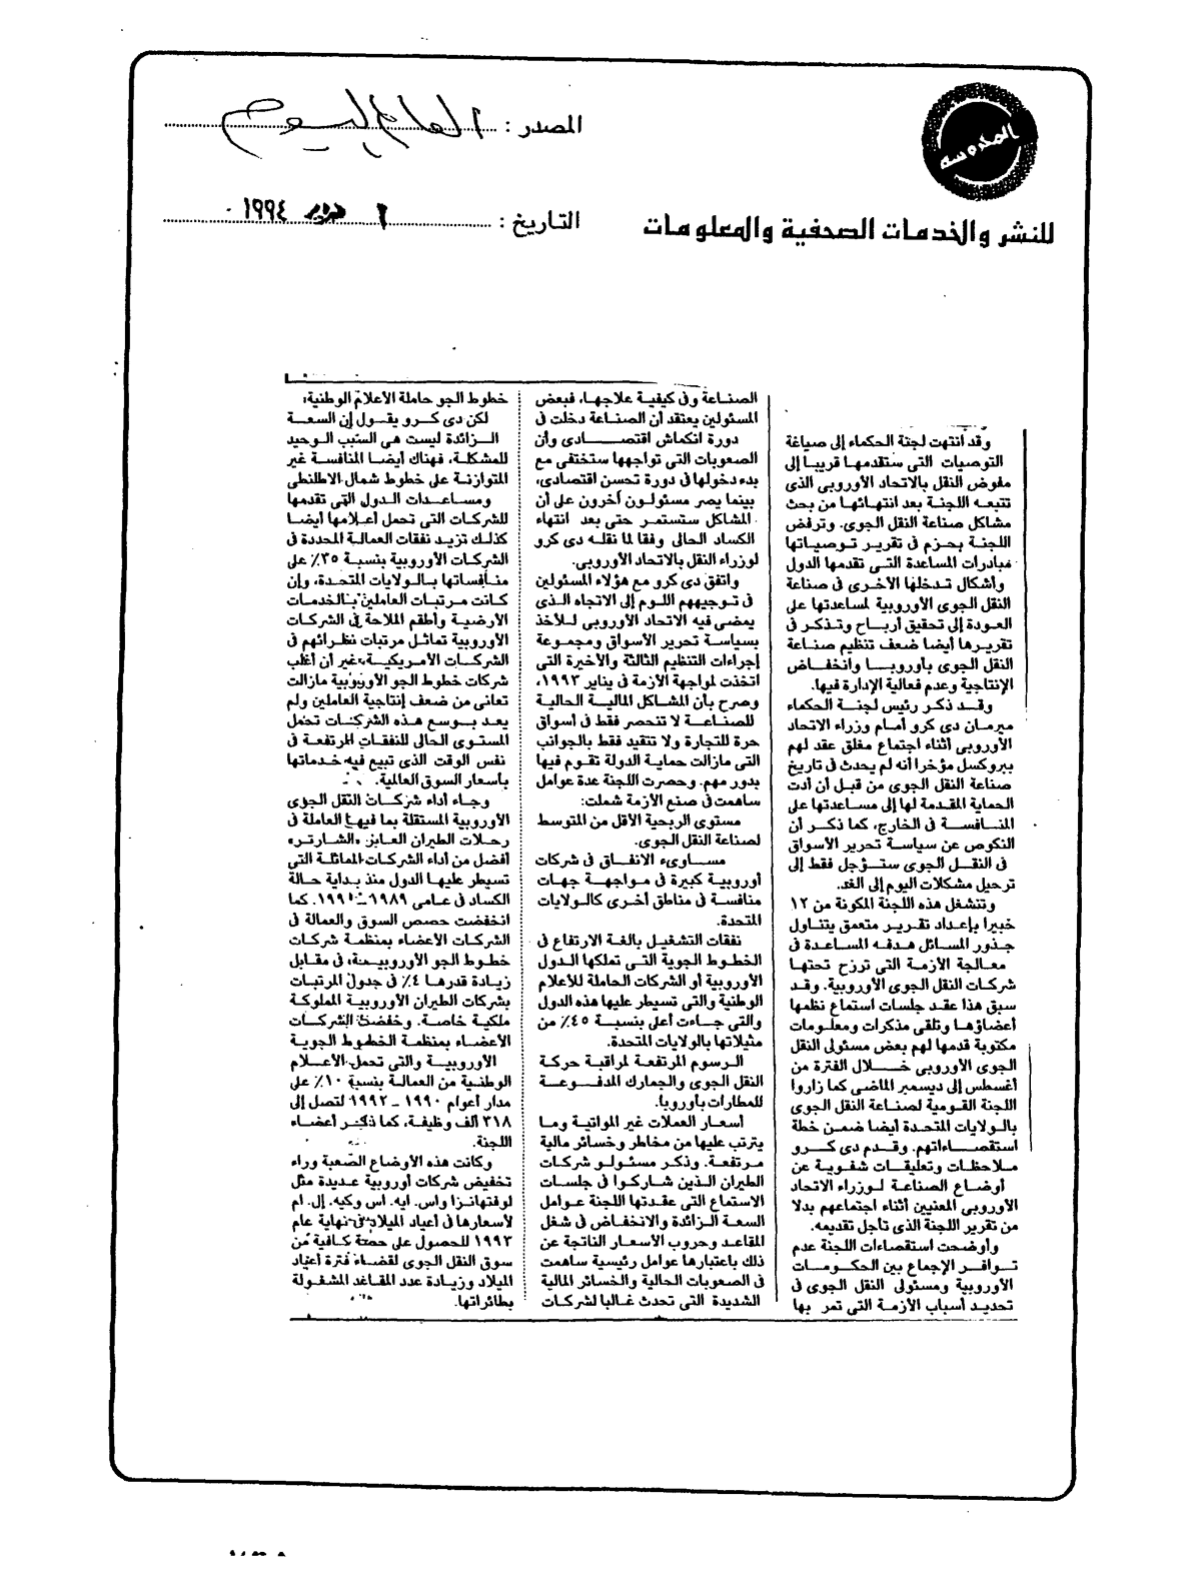 المصدر : العالم اليوم
المحروسه
التاريخ : ٦ فبراير ١٩٩٤
للنشر والخدمات الصحفية والمعلومات
وقد انتهت لجنة الحكماء إلى صياغة
التوصيات التى ستقدمها قريبا إلى
مفوض النقل بالاتحاد الأوروبى الذى
تتبعه اللجنة بعد انتهائها من بحث
مشاكل صناعة النقل الجوى. وترفض
اللجنة بحزم فى تقرير توصياتها
مبادرات المساعدة التى تقدمها الدول
وأشكال تدخلها الأخرى فى صناعة
النقل الجوى الأوروبية لمساعدتها على
العودة إلى تحقيق أرباح وتذكر فى
تقريرها أيضا ضعف تنظيم صناعة
النقل الجوى بأوروبا وانخفاض
الإنتاجية وعدم فعالية الإدارة فيها.
وقد ذكر رئيس لجنة الحكماء
ميرمان دى كرو أمام وزراء الاتحاد
الأوروبى أثناء اجتماع مغلق عقد لهم
ببروكسل مؤخرا أنه لم يحدث فى تاريخ
صناعة النقل الجوى من قبل أن أدت
الحماية المقدمة لها إلى مساعدتها على
المنافسة فى الخارج، كما ذكر أن
النكوص عن سياسة تحرير الأسواق
فى النقل الجوى ستؤجل فقط إلى
ترحيل مشكلات اليوم إلى الغد.
وتنشغل هذه اللجنة المكونة من ١٢
خبيرا بإعداد تقرير متعمق يتناول
جذور المسائل هدفه المساعدة فى
معالجة الأزمة التى ترزح تحتها
شركات النقل الجوى الأوروبية. وقد
سبق هذا عقد جلسات استماع نظمها
أعضاؤها وتلقى مذكرات ومعلومات
مكتوبة قدمها لهم بعض مسئولى النقل
الجوى الأوروبى خلال الفترة من
أغسطس إلى ديسمبر الماضى كما زاروا
اللجنة القومية لصناعة النقل الجوى
بالولايات المتحدة أيضا ضمن خطة
استقصاءاتهم. وقدم دى كرو
ملاحظات وتعليقات شفوية عن
أوضاع الصناعة لوزراء الاتحاد
الأوروبى المعنيين أثناء اجتماعهم بدلا
من تقرير اللجنة الذى تأجل تقديمه.
وأوضحت استقصاءات اللجنة عدم
توافر الإجماع بين الحكومات
الأوروبية ومسئولى النقل الجوى فى
تحديد أسباب الأزمة التى تمر بها
الصناعة وفى كيفية علاجها، فبعض
المسئولين يعتقد أن الصناعة دخلت فى
دورة انكماش اقتصادى وأن
الصعوبات التى تواجهها ستختفى مع
بدء دخولها فى دورة تحسن اقتصادى،
بينما يصر مسئولون آخرون على أن
المشاكل ستستمر حتى بعد انتهاء
الكساد الحالى وفقا لما نقله دى كرو
لوزراء النقل بالاتحاد الأوروبى.
واتفق دى كرو مع هؤلاء المسئولين
فى توجيههم اللوم إلى الاتجاه الذى
يمضى فيه الاتحاد الأوروبى للأخذ
بسياسة تحرير الأسواق ومجموعة
إجراءات التنظيم الثالثة والأخيرة التى
اتخذت لمواجهة الأزمة فى يناير ١٩٩٣،
وصرح بأن المشاكل المالية الحالية
للصناعة لا تنحصر فقط فى أسواق
حرة للتجارة ولا تتقيد فقط بالجوانب
التى مازالت حماية الدولة تقوم فيها
بدور مهم. وحصرت اللجنة عدة عوامل
ساهمت فى صنع الأزمة شملت:
مستوى الربحية الأقل من المتوسط
لصناعة النقل الجوى.
مساوىء الانفاق فى شركات
أوروبية كبيرة فى مواجهة جهات
منافسة فى مناطق أخرى كالولايات
المتحدة.
نفقات التشغيل بالغة الارتفاع فى
الخطوط الجوية التى تملكها الدول
الأوروبية أو الشركات الحاملة للأعلام
الوطنية والتى تسيطر عليها هذه الدول
والتى جاءت أعلى بنسبة ٤٥٪ من
مثيلاتها بالولايات المتحدة.
الرسوم المرتفعة لمراقبة حركة
النقل الجوى والجمارك المدفوعة
للمطارات بأوروبا.
أسعار العملات غير المواتية وما
يترتب عليها من مخاطر وخسائر مالية
مرتفعة. وذكر مسئولو شركات
الطيران الذين شاركوا فى جلسات
الاستماع التى عقدتها اللجنة عوامل
السعة الزائدة والانخفاض فى شغل
المقاعد وحروب الأسعار الناتجة عن
ذلك باعتبارها عوامل رئيسية ساهمت
فى الصعوبات الحالية والخسائر المالية
الشديدة التى تحدث غالبا لشركات
خطوط الجو حاملة الأعلام الوطنية؛
لكن دى كرو يقول إن السعة
الزائدة ليست هى السبب الوحيد
للمشكلة، فهناك أيضا المنافسة غير
المتوازنة على خطوط شمال الاطلنطى
ومساعدات الدول التى تقدمها
للشركات التى تحمل أعلامها أيضا
كذلك تزيد نفقات العمالة المحددة فى
الشركات الأوروبية بنسبة ٣٥٪ على
منافساتها بالولايات المتحدة، وإن
كانت مرتبات العاملين بالخدمات
الأرضية وأطقم الملاحة فى الشركات
الأوروبية تماثل مرتبات نظرائهم فى
الشركات الأمريكية، غير أن أغلب
شركات خطوط الجو الأوروبية مازالت
تعانى من ضعف إنتاجية العاملين ولم
يعد بوسع هذه الشركات تحمل
المستوى الحالى للنفقات المرتفعة فى
نفس الوقت الذى تبيع فيه خدماتها
بأسعار السوق العالمية.
وجاء أداء شركات النقل الجوى
الأوروبية المستقلة بما فيها العاملة فى
رحلات الطيران العابر «الشارتر»
أفضل من أداء الشركات المماثلة التى
تسيطر عليها الدول منذ بداية حالة
الكساد فى عامى ١٩٨٩ - ١٩٩١. كما
انخفضت حصص السوق والعمالة فى
الشركات الأعضاء بمنظمة شركات
خطوط الجو الأوروبية، فى مقابل
زيادة قدرها ٤٪ فى جدول المرتبات
بشركات الطيران الأوروبية المملوكة
ملكية خاصة. وخفضت الشركات
الأعضاء بمنظمة الخطوط الجوية
الأوروبية والتى تحمل الأعلام
الوطنية من العمالة بنسبة ١٠٪ على
مدار أعوام ١٩٩٠ - ١٩٩٢ لتصل إلى
٣١٨ ألف وظيفة، كما ذكر أعضاء
اللجنة.
وكانت هذه الأوضاع الصعبة وراء
تخفيض شركات أوروبية عديدة مثل
لوفتهانزا واس. ايه. اس وكيه. إل. ام
لأسعارها فى أعياد الميلاد فى نهاية عام
١٩٩٣ للحصول على حصة كافية من
سوق النقل الجوى لقضاء فترة أعياد
الميلاد وزيادة عدد المقاعد المشغولة
بطائراتها.